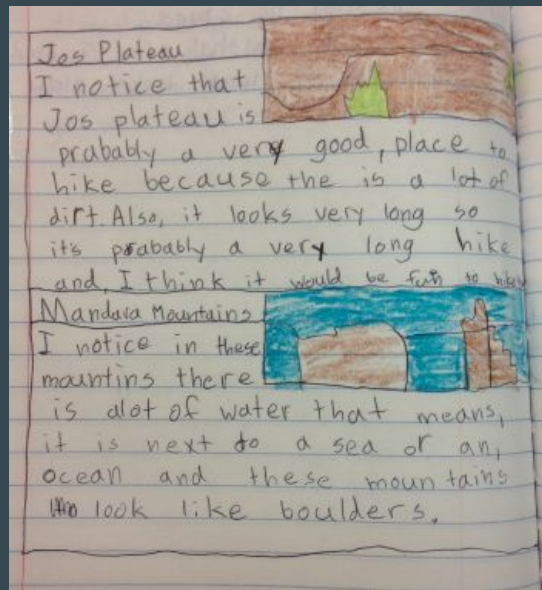 Jos Plateau
I notice that
Jos plateau is
prabably a very good, place to
hike because the is a lot of
dirt. Also, it looks very long so
its prabably a very long hike
and, I think it would be fun to hike
Mandara Mountains
I notice in these
mauntins there
is alot of water that means,
it is next to a sea or an,
ocean and these mountains
look like boulders.